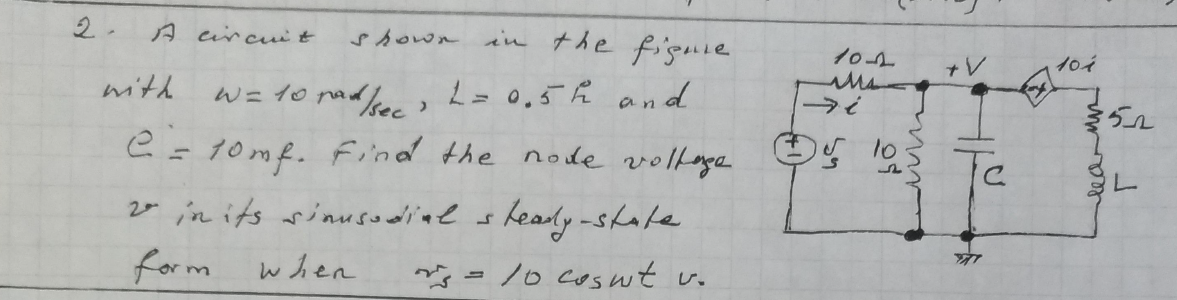 2. A circuit shown in the figure
with w = 10 rad/sec, L = 0.5 h and
C = 10 mf. Find the node voltage
v in its sinusodial steady-state
form when vs = 10 cos wt v.
10Ω
+V
10i
i
5Ω
+
-
vs
10
Ω
C
L